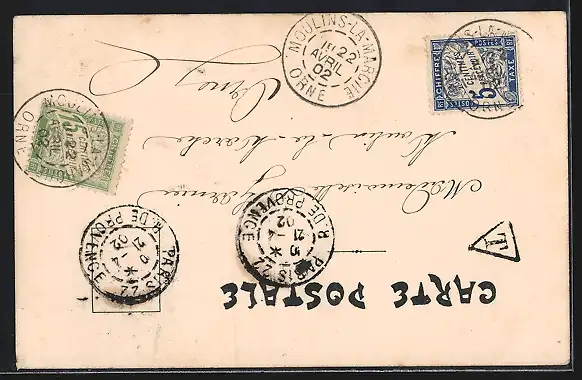 CARTE POSTALE
T
PARIS 22
R. DE PROVENCE
21
02
PARIS 22
R. DE PROVENCE
21
02
Mademoiselle
Moulins-la-Marche
Orne
MOULINS-LA-MARCHE
22
AVRIL
02
ORNE
MOULINS-LA-MARCHE
22
AVRIL
ORNE
CHIFFRE
TAXE
POSTES
5
CENTIMES
À PERCEVOIR
ORNE